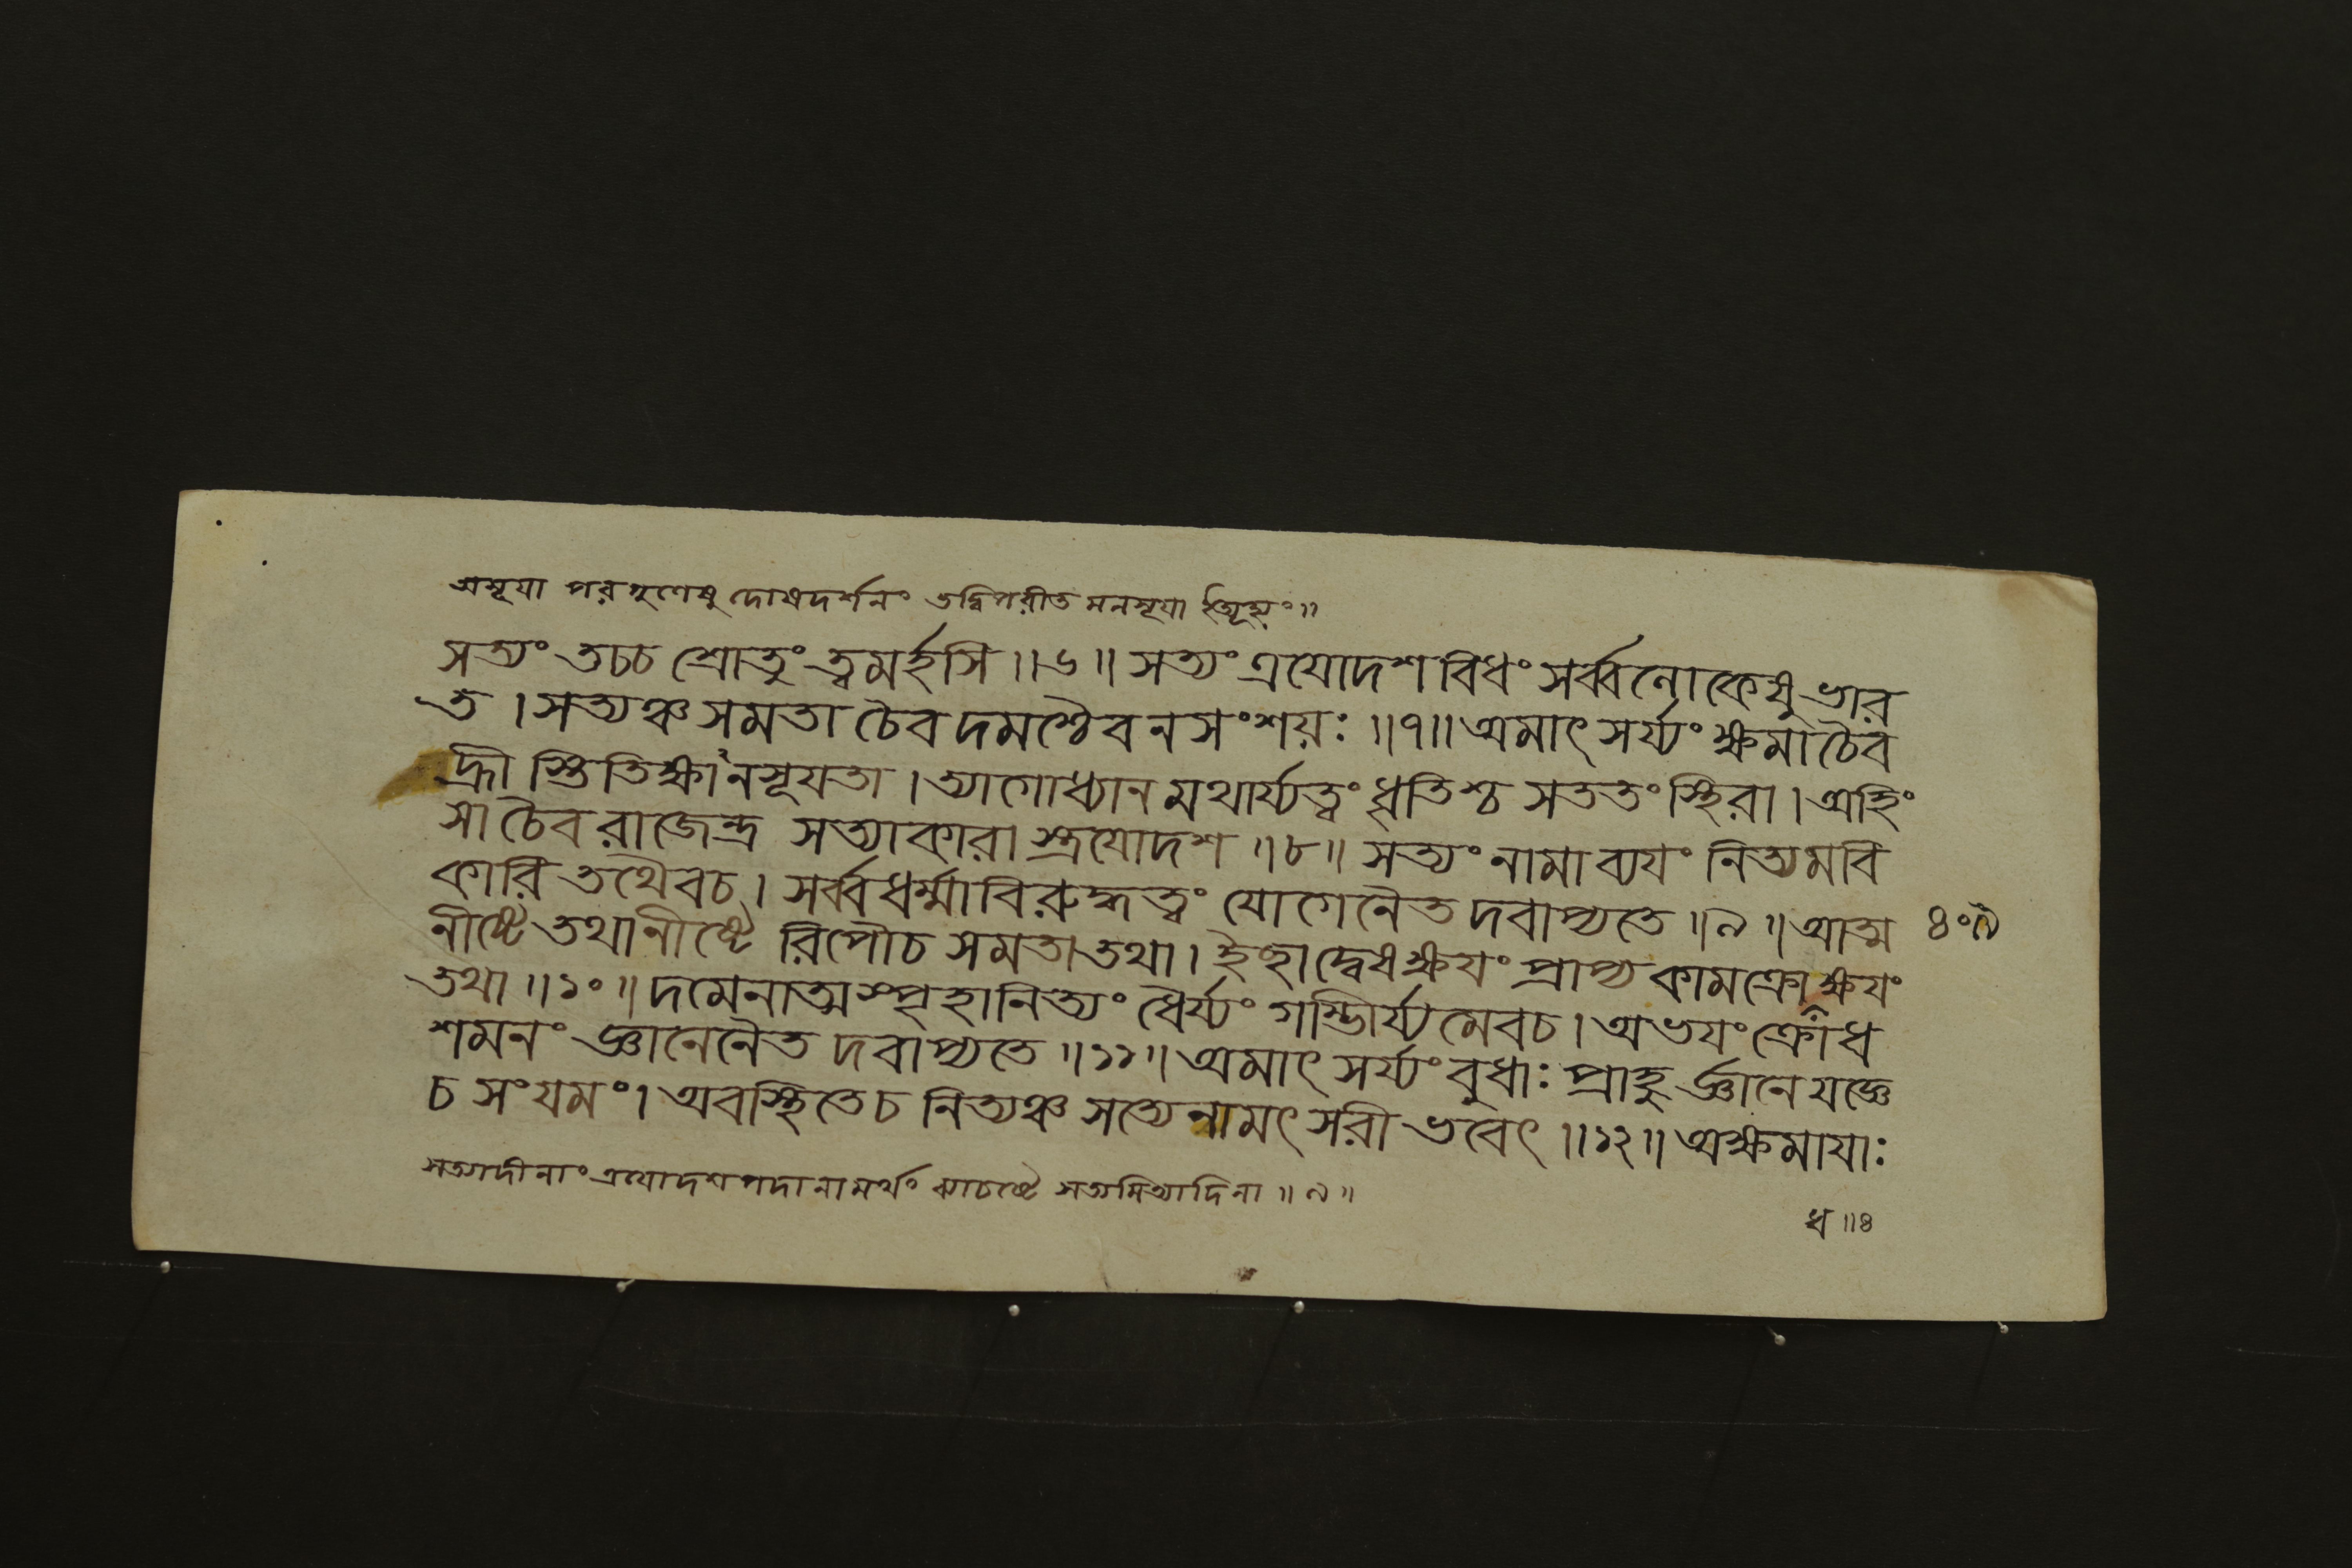 অসূযা পরগুণেষু দোষদর্শনং তদ্বিপরীত মনসূযা
সত্যং তচচ শ্রোতুং ত্বমর্হসি ॥৬॥ সত্যং ত্রযোদশবিধং সর্ব্বলোকেষু ভার
ত । সত্যঞ্চ সমতা চৈব দমশ্চৈব নসংশয়ঃ ॥৭॥ অমাৎসর্য্যং ক্ষমাচৈব
হ্রী স্তিতিক্ষানসূযতা । ত্যাগোধ্যান মথার্য্যত্বং ধৃতিশ্চ সততং স্থিরা । অহিং
সা চৈব রাজেন্দ্র সত্যাকারা স্ত্রযোদশ ॥৮॥ সত্যং নামাব্যযং নিত্যমবি
কারি তথৈবচ । সর্ব্বধর্ম্মাবিরুদ্ধত্বং যোগেনৈত দবাপ্যতে ॥৯॥ আত্ম
নীষ্টে তথানীষ্টে রিপৌচ সমতা তথা । ইহাদ্বেষক্ষযং প্রাপ্য কামক্রোক্ষযং
তথা ॥১০॥ দমেনাত্মস্পৃহানিত্যং ধৈর্য্যং গম্ভীর্য্যমেবচ । অভযং ক্রোধ
শমনং জ্ঞানেনৈত দবাপ্যতে ॥১১॥ অমাৎসর্য্যং বুধাঃ প্রাহু র্জ্ঞানে যজ্ঞে
চ সংযমং । অবস্থিতেচ নিত্যঞ্চ সত্যেনামৎসরী ভবেৎ ॥১২॥ অক্ষমাযাঃ
সত্যাদীনাং ত্রযোদশপদানামর্থং ব্যাচষ্টে সত্যমিত্যাদিনা ॥৯॥
ধ ॥৪